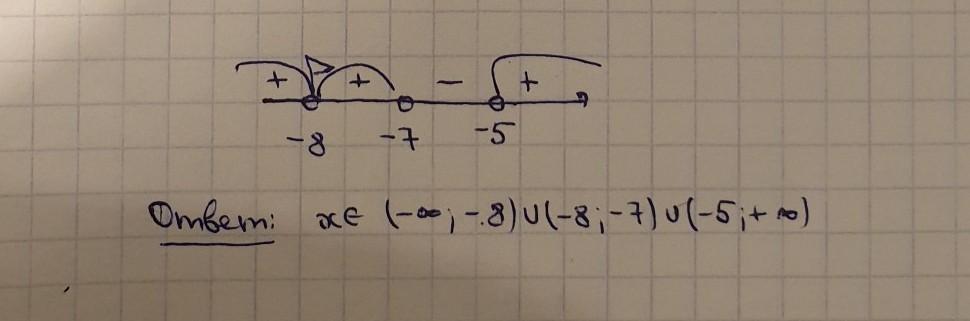 + + − +
−8 −7 −5
Ответ: x∈ (−∞; −8)∪(−8; −7)∪(−5; +∞)